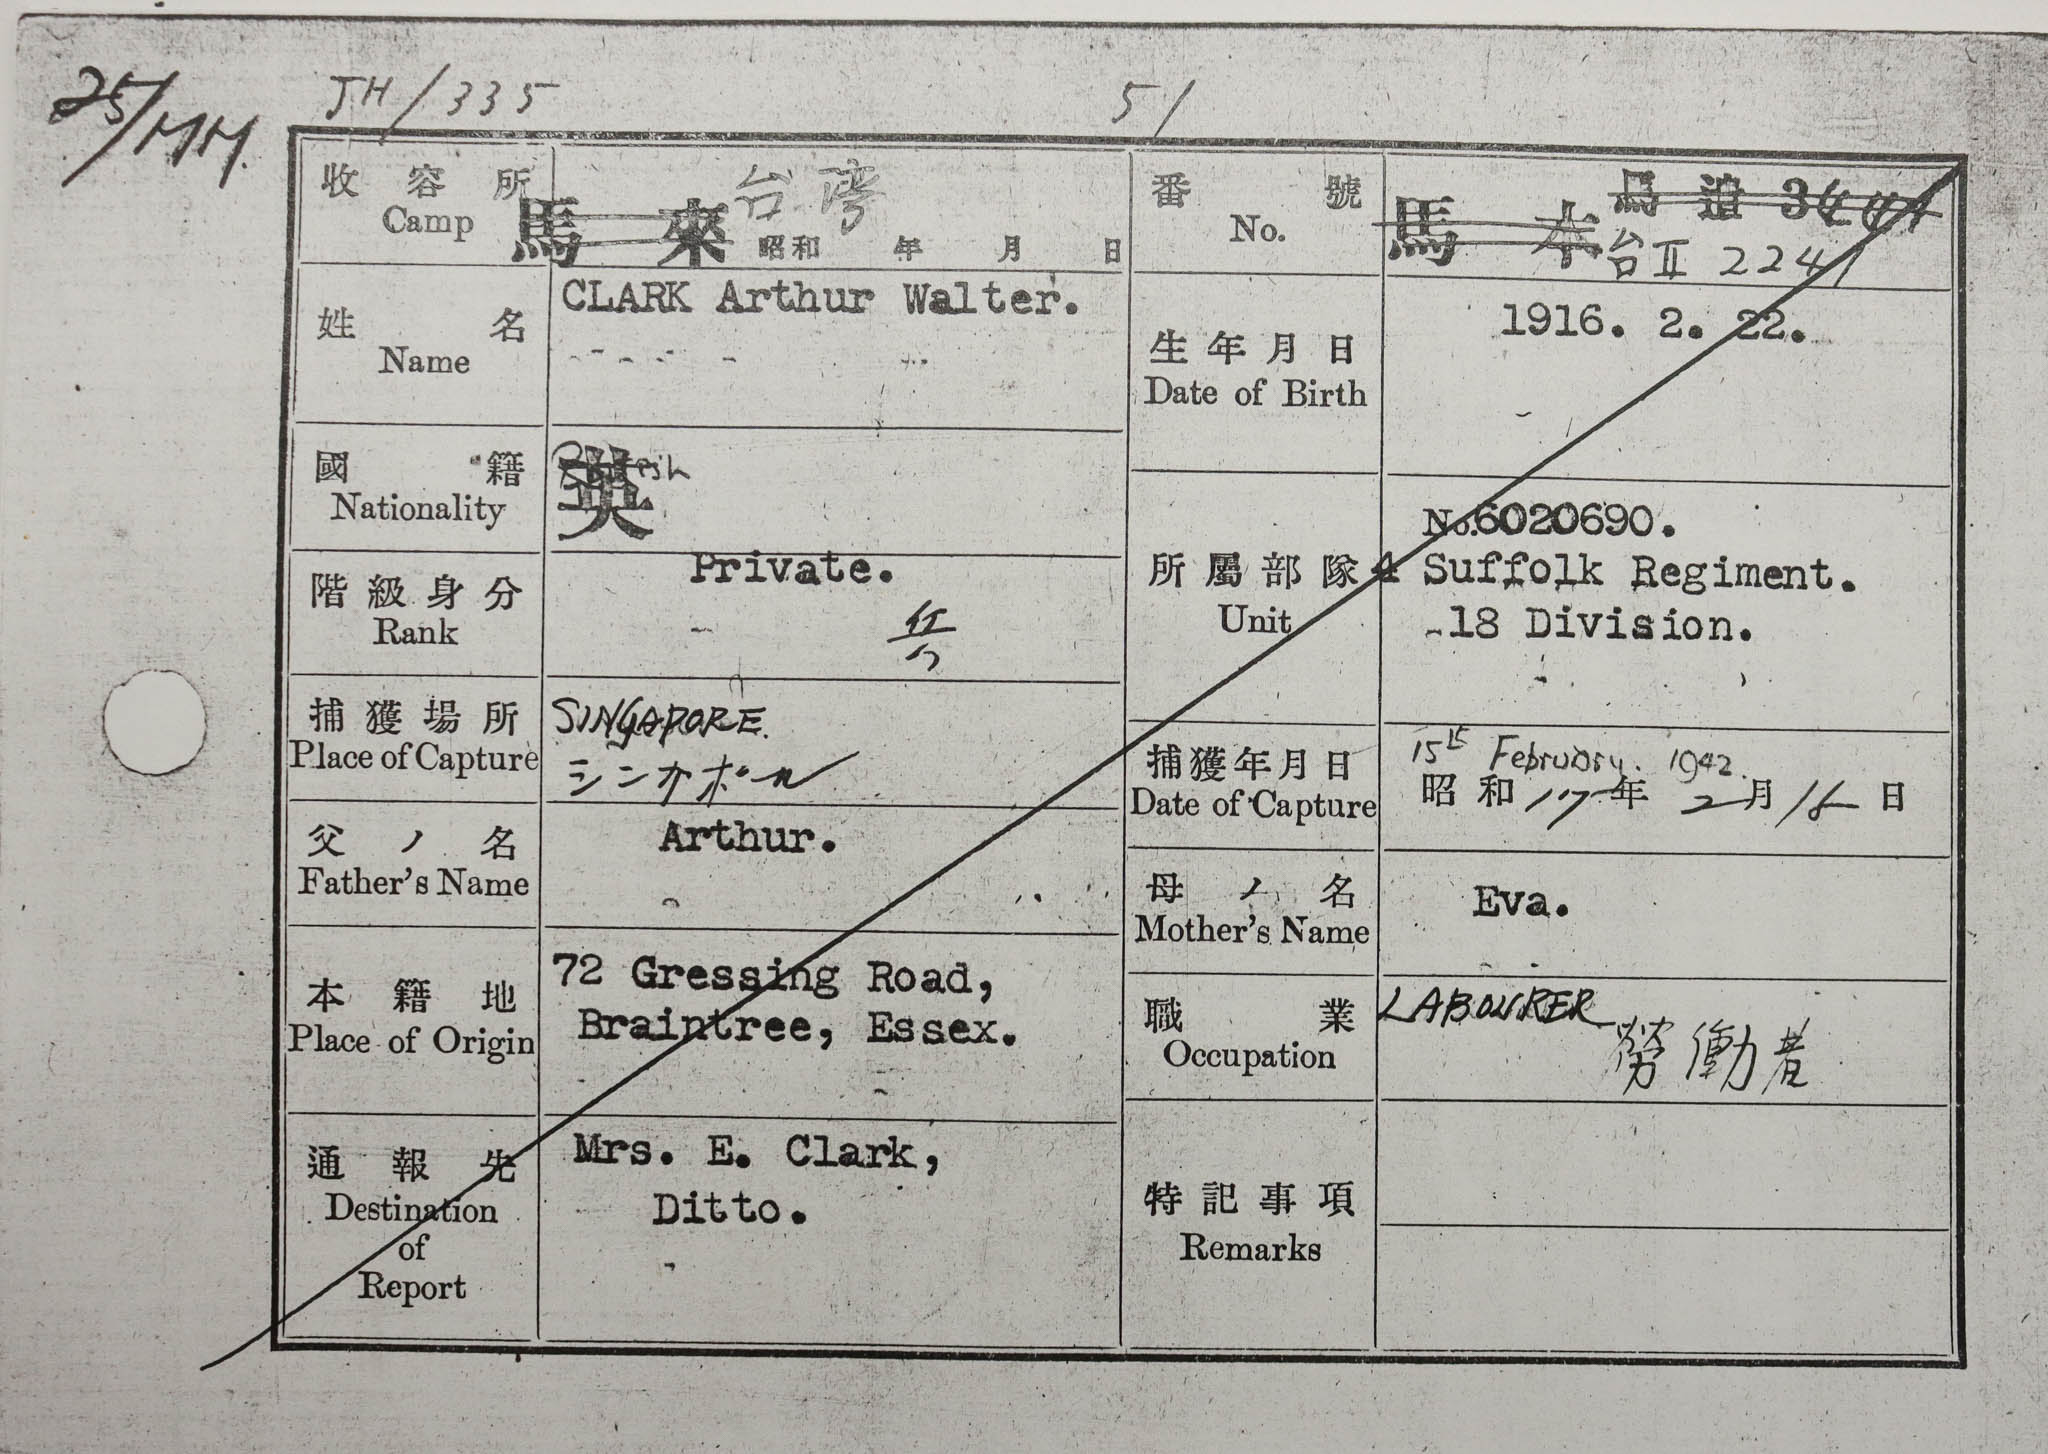 25/MM.
JH/335
51
收容所
Camp
馬來
台湾
昭和 年 月 日
番號
No.
馬本
馬追
台Ⅱ 2241
姓名
Name
CLARK Arthur Walter.
生年月日
Date of Birth
1916. 2. 22.
國籍
Nationality
British
英
階級身分
Rank
Private.
兵
所屬部隊
Unit
No.6020690.
4 Suffolk Regiment.
18 Division.
捕獲場所
Place of Capture
SINGAPORE.
シンガポール
捕獲年月日
Date of Capture
15th February. 1942.
昭和 17年 2月 15日
父ノ名
Father's Name
Arthur.
母ノ名
Mother's Name
Eva.
本籍地
Place of Origin
72 Gressing Road,
Braintree, Essex.
職業
Occupation
LABOURER
勞働者
通報先
Destination
of
Report
Mrs. E. Clark,
Ditto.
特記事項
Remarks